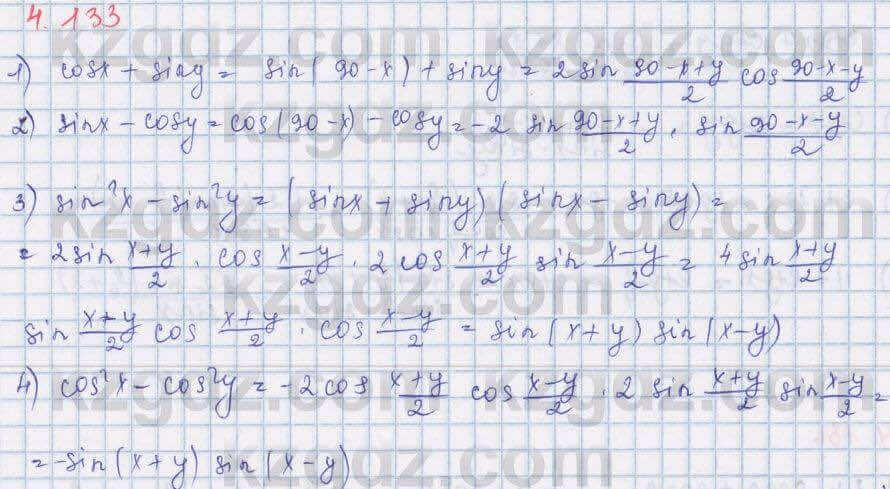 4.133
1) cosx + siny = sin(90-x) + siny = 2sin (90-x+y)/2 cos (90-x-y)/2
2) sinx - cosy = cos(90-x) - cosy = -2 sin (90-x+y)/2 · sin (90-x-y)/2
3) sin²x - sin²y = (sinx + siny)(sinx - siny) =
= 2sin (x+y)/2 · cos (x-y)/2 · 2cos (x+y)/2 sin (x-y)/2 = 4sin (x+y)/2
sin (x-y)/2 cos (x+y)/2 · cos (x-y)/2 = sin(x+y) sin(x-y)
4) cos²x - cos²y = -2cos (x+y)/2 cos (x-y)/2 · 2 sin (x+y)/2 sin (x-y)/2 =
= -sin(x+y) sin(x-y)
kzgdz.com
kzgdz.com
kzgdz.com
kzgdz.com
kzgdz.com
kzgdz.com